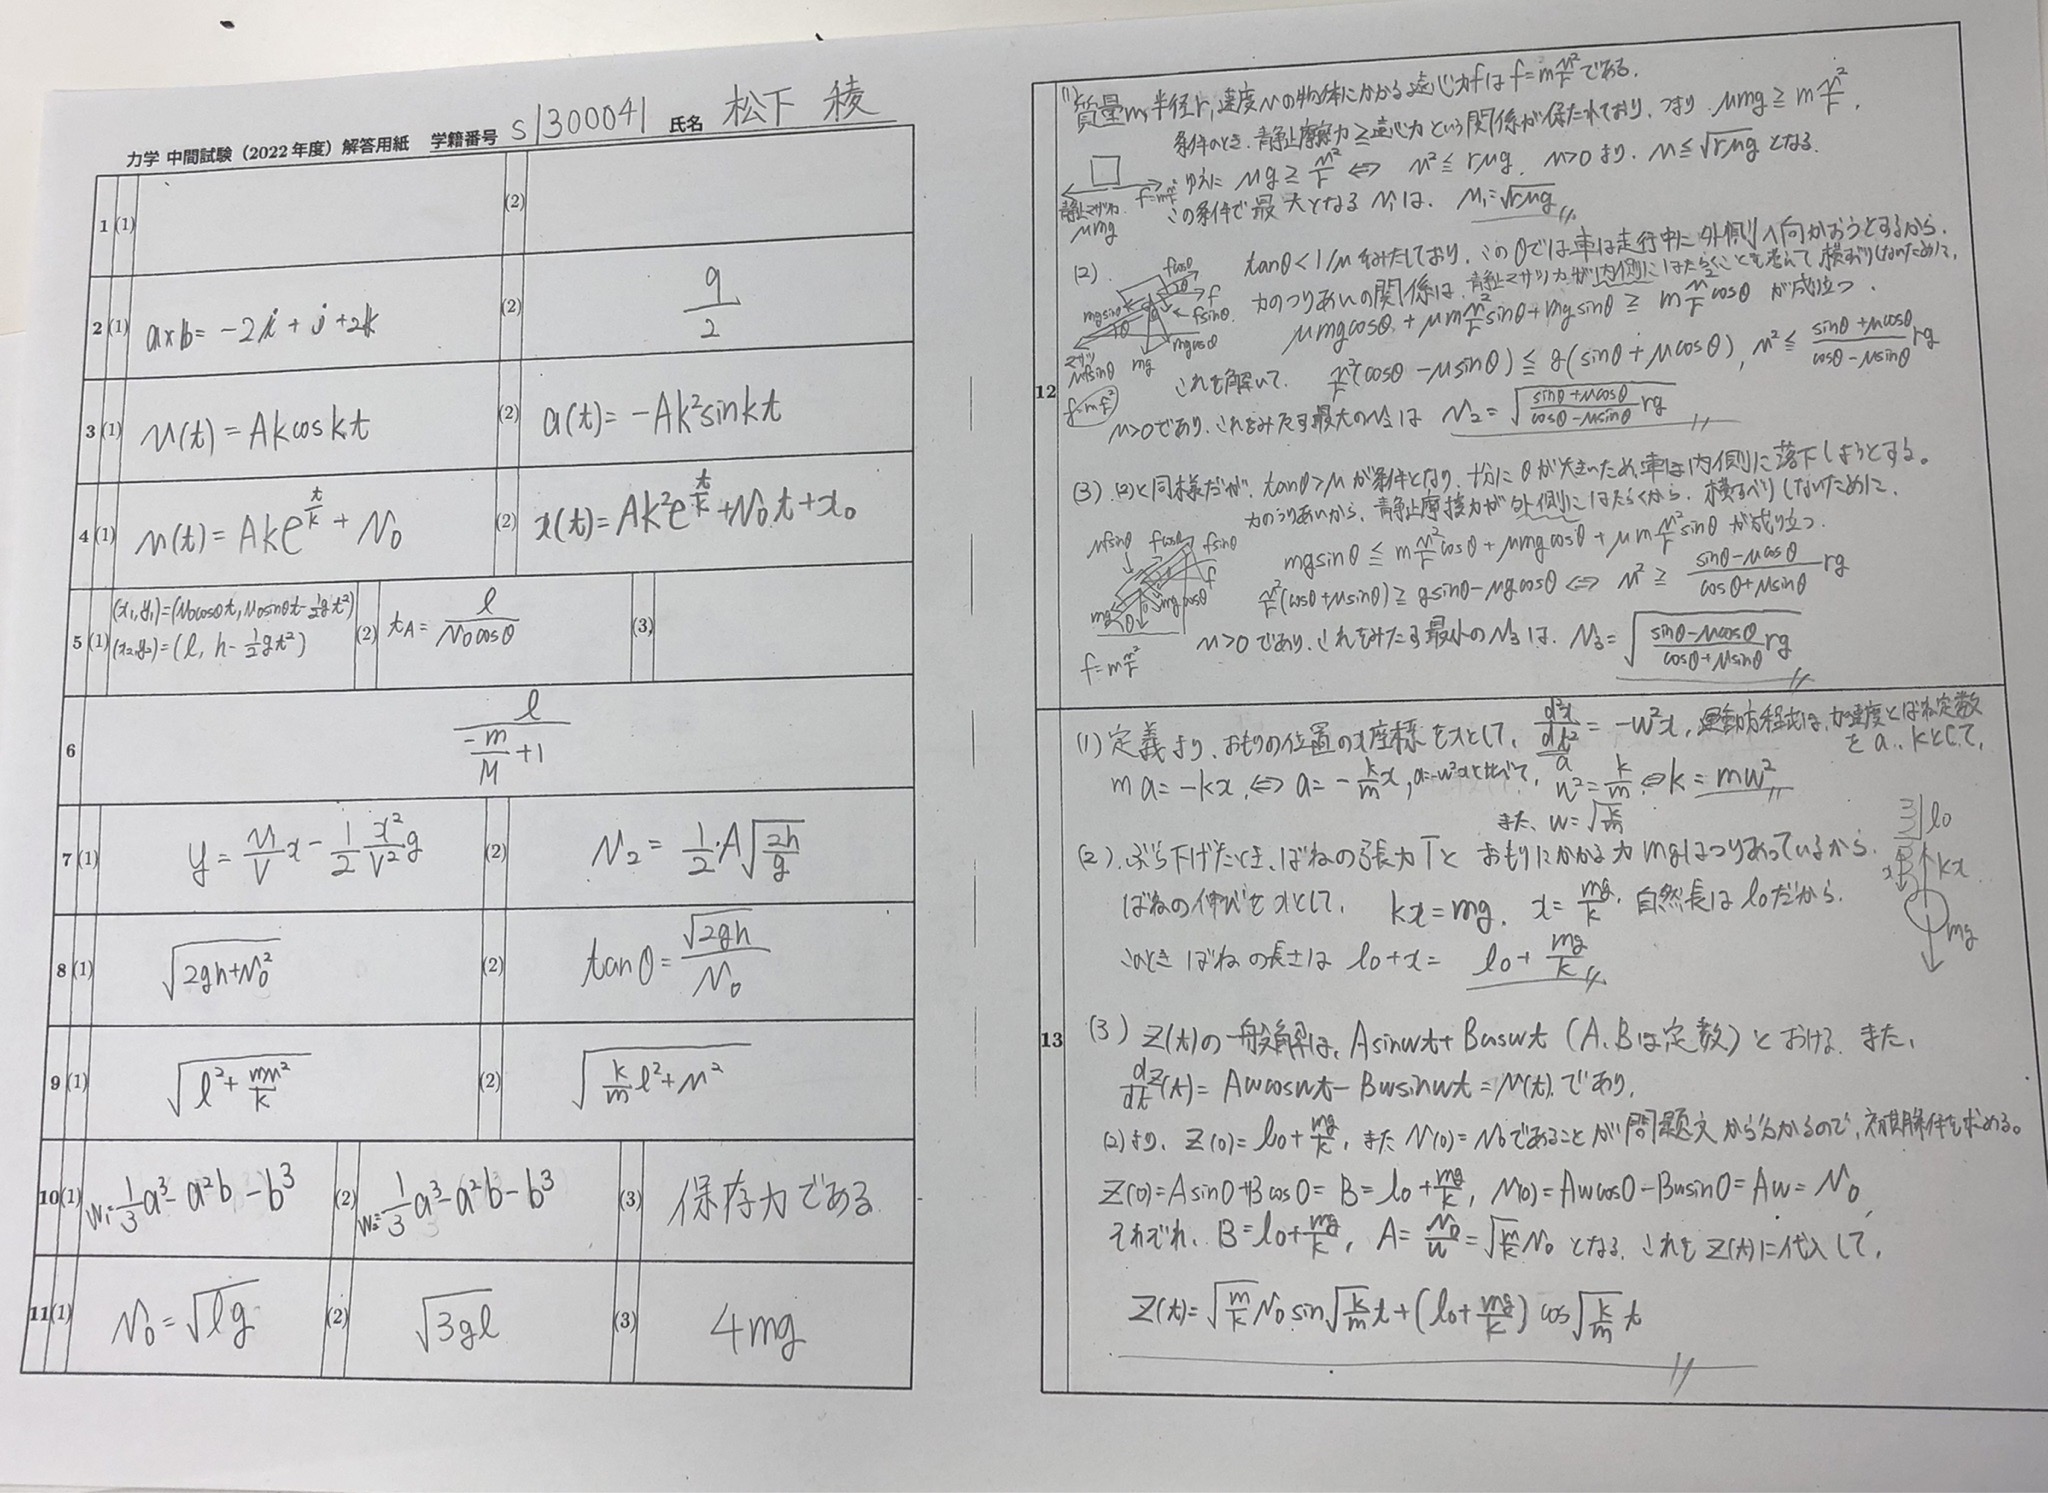 力学 中間試験（2022年度）解答用紙 学籍番号 S1300041 氏名 松下 稜
1 (1) (2)
2 (1) a×b = -2i + j + 2k (2) 9/2
3 (1) v(t) = Ak cos kt (2) a(t) = -Ak² sin kt
4 (1) v(t) = Ake^{t/k} + v₀ (2) x(t) = Ak²e^{t/k} + v₀t + x₀
5 (1) (x₁, y₁) = (v₀cosθt, v₀sinθt - ½gt²)
(x₂, y₂) = (l, h - ½gt²) (2) t_A = l/(v₀cosθ) (3)
6 l/(-m/M + 1)
7 (1) y = (v₁/V)x - (1/2)(x²/V²)g (2) v₂ = (1/2)·A√(2h/g)
8 (1) √(2gh+v₀²) (2) tanθ = √(2gh)/v₀
9 (1) √(l² + mv²/k) (2) √((k/m)l² + v²)
10 (1) W₁=(1/3)a³ - a²b - b³ (2) W₂=(1/3)a³ - a²b - b³ (3) 保存力である
11 (1) v₀ = √(lg) (2) √(3gl) (3) 4mg
12
(1) 質量m, 半径r, 速度vの物体にかかる遠心力fは f = m v²/r である.
条件のとき, 静止摩擦力 ≧ 遠心力 という関係が保たれており, つまり μmg ≧ m v²/r.
ゆえに μg ≧ v²/r ⇔ v² ≦ rμg. v>0 より, v ≦ √(rμg) となる.
この条件で最大となる v₁ は, v₁ = √(rμg)
静止マサツ力 μmg f = m v²/r
(2). tanθ < 1/μ をみたしており, このθでは車は走行中に外側へ向かおうとするから,
力のつりあいの関係は, 静止マサツ力が内側にはたらくことも考えて 横すべりしないために,
μmgcosθ + μm(v²/r)sinθ + mgsinθ ≧ m(v²/r)cosθ が成立つ.
これを解いて, (v²/r)(cosθ - μsinθ) ≦ g(sinθ + μcosθ), v² ≦ ((sinθ+μcosθ)/(cosθ-μsinθ))rg
v>0であり, これをみたす最大のv₂は v₂ = √(((sinθ+μcosθ)/(cosθ-μsinθ))rg)
fcosθ f fsinθ mgsinθ mgcosθ mg マサツ μfsinθ θ f = m v²/r
(3). (2)と同様だが, tanθ>μ が条件となり, 十分にθが大きいため, 車は内側に落下しようとする.
力のつりあいから, 静止摩擦力が外側にはたらくから, 横すべりしないために,
mgsinθ ≦ m(v²/r)cosθ + μmgcosθ + μm(v²/r)sinθ が成り立つ.
(v²/r)(cosθ+μsinθ) ≧ gsinθ - μgcosθ ⇔ v² ≧ ((sinθ-μcosθ)/(cosθ+μsinθ))rg
v>0 であり, これをみたす最小のv₃は, v₃ = √(((sinθ-μcosθ)/(cosθ+μsinθ))rg)
μfsinθ fcosθ fsinθ f mgcosθ mg θ
f = m v²/r
13
(1) 定義より, おもりの位置のx座標をxとして, d²x/dt² = -ω²x, 運動方程式は, 加速度とばね定数
を a, kとして,
ma = -kx, ⇔ a = -(k/m)x, a=-ω²xと比べて, ω² = k/m ⇔ k = mω²
また, ω = √(k/m)
(2). ぶら下げたとき, ばねの張力Tと おもりにかかる力mgはつりあっているから.
ばねの伸びをxとして, kx = mg. x = mg/k. 自然長は l₀だから.
このとき ばねの長さは l₀ + x = l₀ + mg/k
l₀ x kx mg
(3) Z(t)の一般解は, A sinωt + B cosωt (A, Bは定数) とおける. また,
(d/dt)Z(t) = Aωcosωt - Bωsinωt = v(t). であり,
(2)より, Z(0) = l₀ + mg/k, また v(0) = v₀であることが問題文から分かるので, 初期条件を求める。
Z(0) = A sin0 + B cos0 = B = l₀ + mg/k, v(0) = Aωcos0 - Bωsin0 = Aω = v₀
それぞれ, B = l₀ + mg/k, A = v₀/ω = √(m/k) v₀ となる. これを Z(t)に代入して,
Z(t) = √(m/k) v₀ sin√(k/m) t + (l₀ + mg/k) cos√(k/m) t